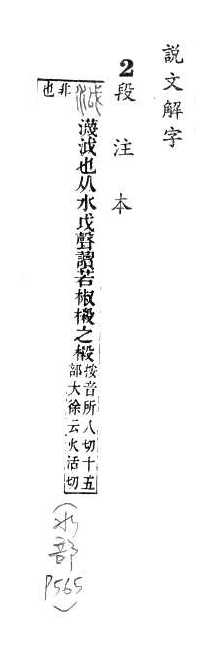 説文解字
2段注本
泧 瀎泧也从水戉聲讀若椒樧之樧
按音所八切十五
部大徐云火活切
非
也
(水部
P565)